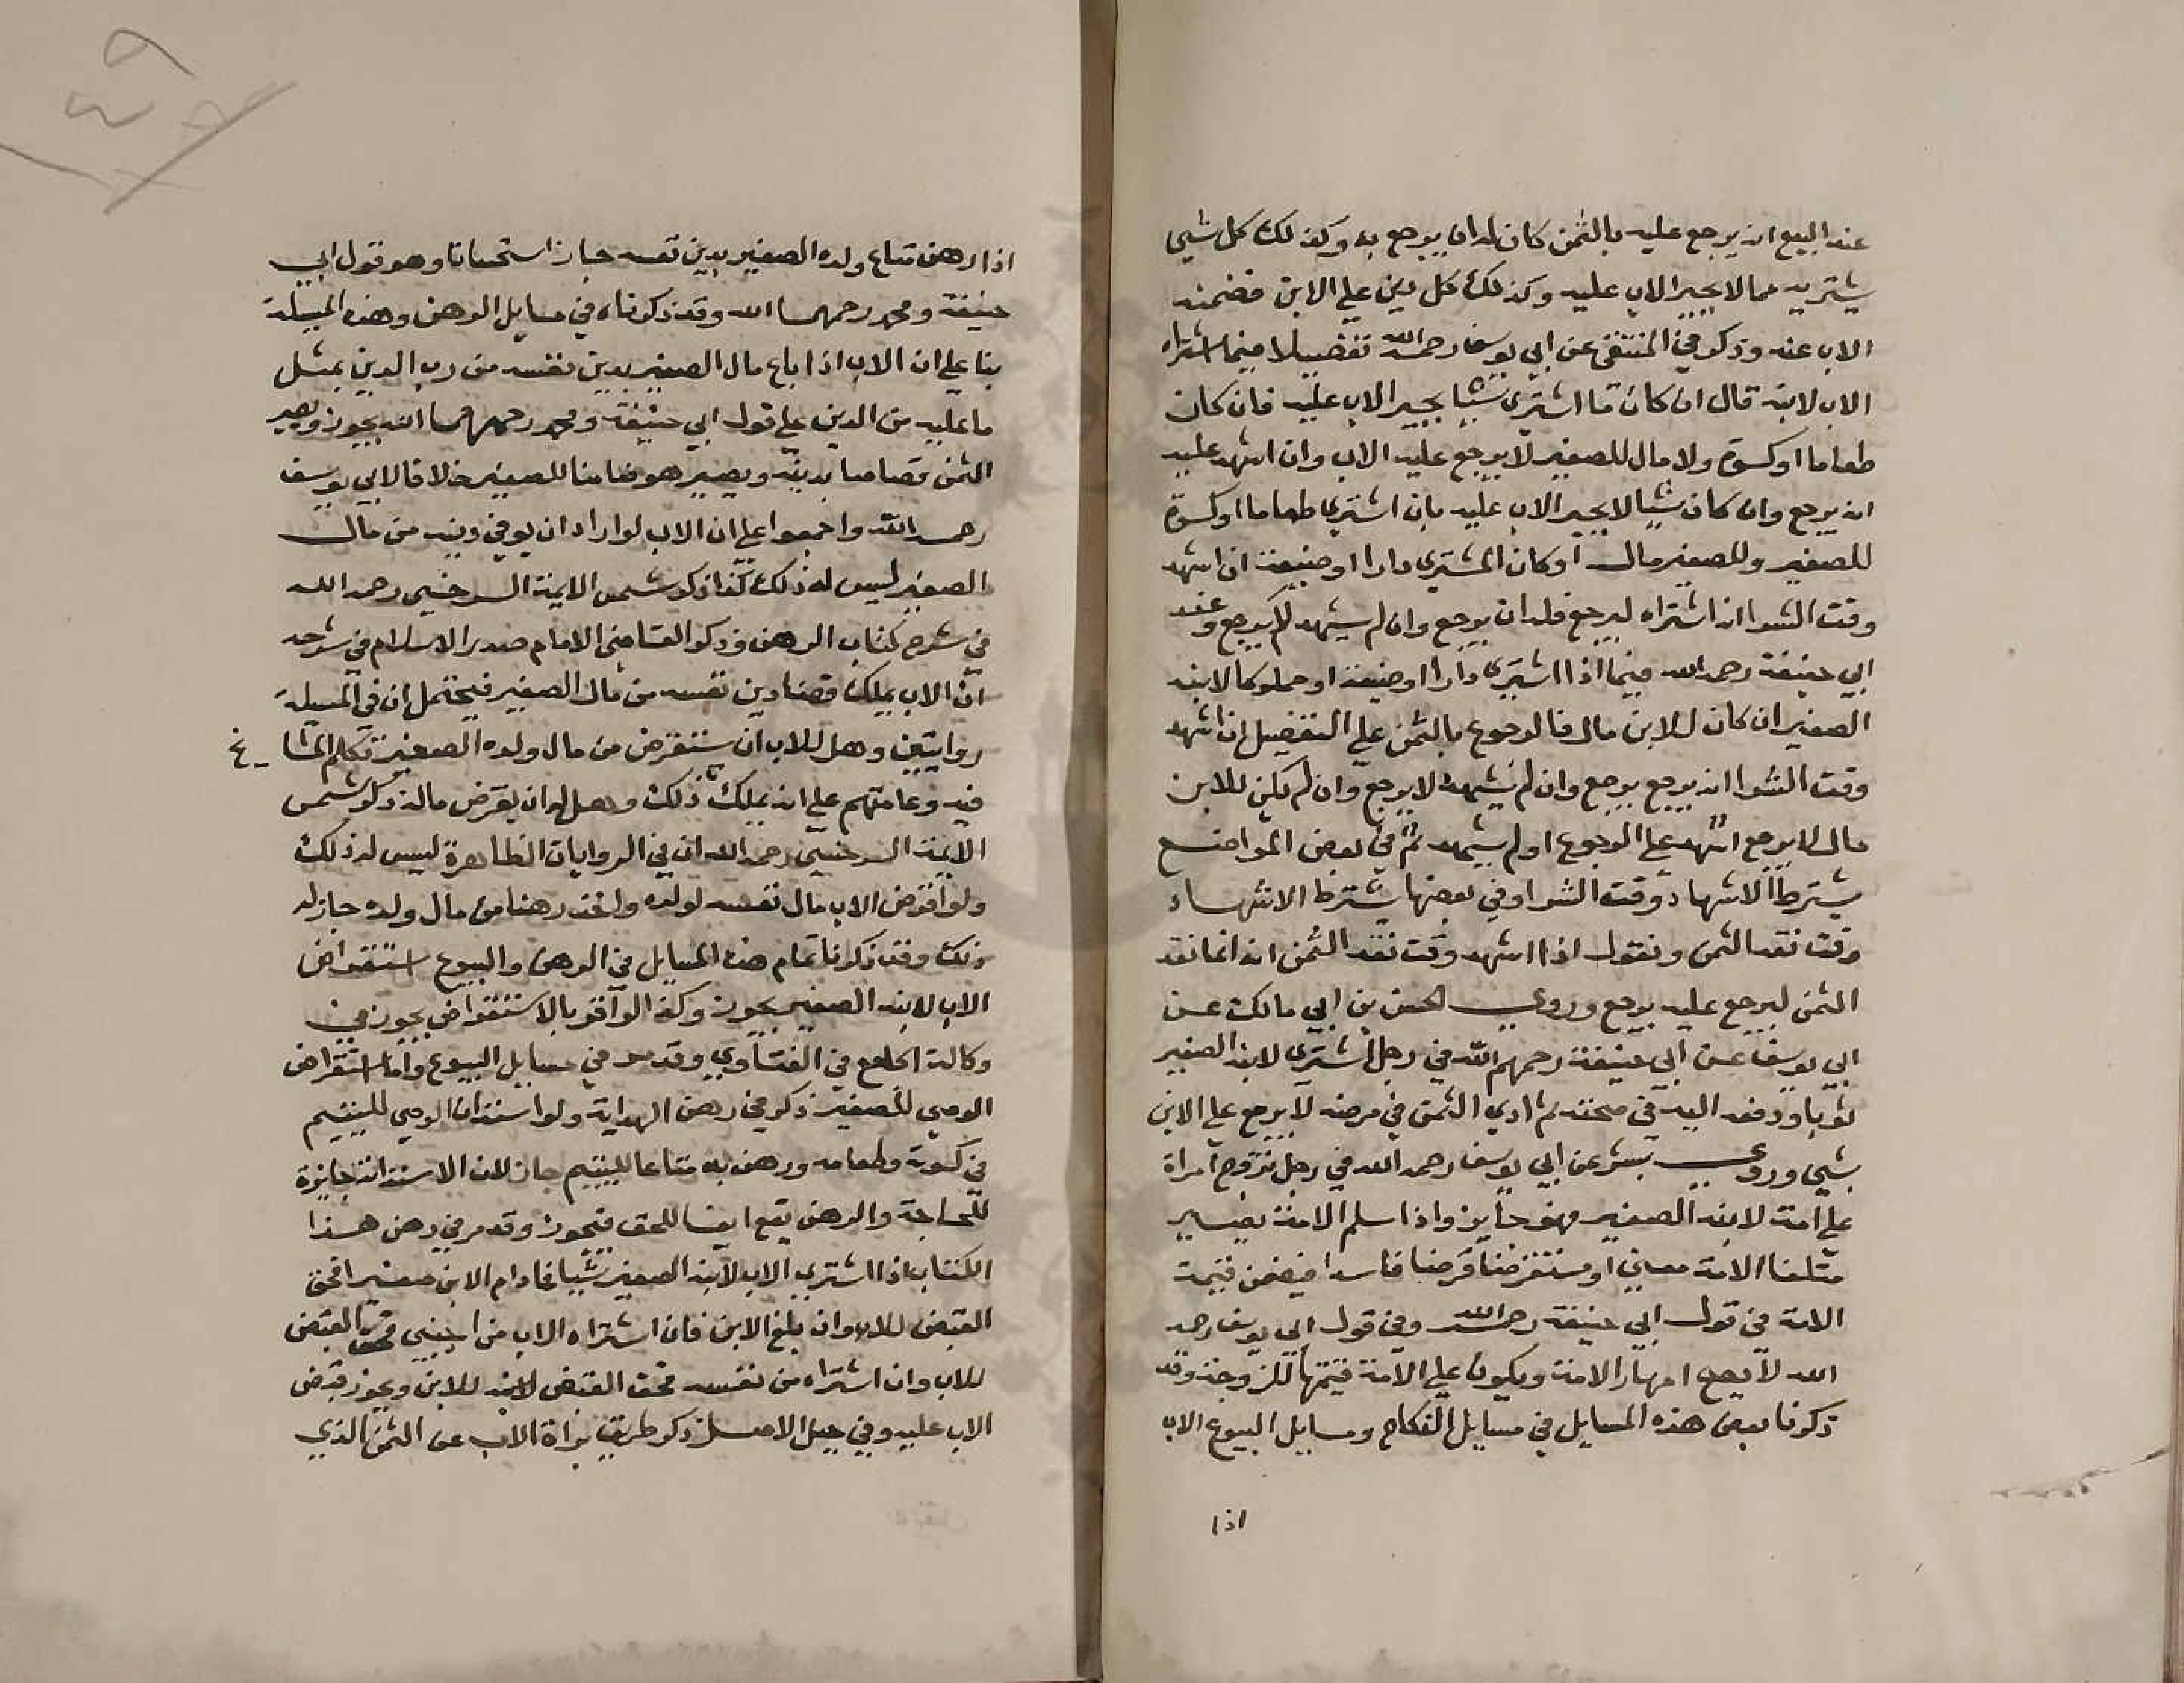 عند البيع انه يرجع عليه بالثمن كان له ان يرجع به وكذلك كل شيي
يشتريه مما لا يجبر الاب عليه وكذلك كل دين علي الابن فضمنه
الاب عنه وذكر في المنتقى عن ابي يوسف رحمه الله تفصيلا فيما اشتراه
الاب لابنه قال ان كان ما اشترى شيا يجبر الاب عليه فان كان
طعاما او كسوة ولا مال للصغير لا يرجع عليه الاب وان اشهد عليه
انه يرجع وان كان شيا لا يجبر الاب عليه بان اشترى طعاما او كسوة
للصغير وللصغير مال او كان المشترى دارا او ضيعة ان اشهد
وقت الشرا انه اشتراه ليرجع فله ان يرجع وان لم يشهد لم يرجع وعند
ابي حنيفة رحمه الله فيما اذا اشترى دارا او ضيعة او مملوكا لابنه
الصغير ان كان للابن مال فالرجوع بالثمن علي التفصيل ان اشهد
وقت الشرا انه يرجع يرجع وان لم يشهد لا يرجع وان لم يكن للابن
مال لا يرجع اشهد علي الرجوع او لم يشهد ثم في بعض المواضع
يشترط الاشهاد وقت الشرا وفي بعضها يشترط الاشهاد
وقت نقد الثمن ونقول اذا اشهد وقت نقد الثمن انه انما نقد
الثمن ليرجع عليه يرجع وروي الحسن بن ابي مالك عن
ابي يوسف عن ابي حنيفة رحمهم الله في رجل اشترى لابنه الصغير
ثوبا ودفعه اليه في صحته ثم ادي الثمن في مرضه لا يرجع علي الابن
بشيي وروى بشر عن ابي يوسف رحمه الله في رجل تزوج امراة
علي امة لابنه الصغير فهو جايز واذا سلم الامة يصير
متلفا الامة معنى او مستقرضا قرضا فاسدا فيضمن قيمة
الامة في قول ابي حنيفة رحمه الله وفي قول ابي يوسف رحمه
الله لا يصح امهار الامة ويكون علي الامة قيمتها للزوجة وقد
ذكرنا بعض هذه المسايل في مسايل النكاح ومسايل البيوع الاب
اذا
اذا رهن متاع ولده الصغير بدين نفسه جاز استحسانا وهو قول ابي
حنيفة ومحمد رحمهما الله وقد ذكرناه في مسايل الرهن وهذه المسيلة
بنا علي ان الاب اذا باع مال الصغير بدين نفسه من رب الدين بمثل
ما عليه من الدين علي قول ابي حنيفة ومحمد رحمهما الله يجوز ويصير
الثمن قصاصا بدينه ويصير هو ضامنا للصغير خلافا لابي يوسف
رحمه الله واجمعوا علي ان الاب لو اراد ان يوفي دينه من مال
الصغير ليس له ذلك كذا ذكر شمس الايمة السرخسي رحمه الله
في شرح كتاب الرهن وذكر القاضى الامام صدر الاسلام في شرحه
ان الاب يملك قضا دين نفسه من مال الصغير فيحتمل ان في المسيلة
روايتين وهل للاب ان يستقرض من مال ولده الصغير تكلم المشا يخ
فيه وعامتهم علي انه يملك ذلك وهل له ان يقرض ماله ذكر شمس
الايمة السرخسي رحمه الله ان في الروايات الظاهرة ليس له ذلك
ولو اقرض الاب مال نفسه لولده واخذ رهنا من مال ولده جاز له
ذلك وقد ذكرنا تمام هذه المسايل في الرهن والبيوع استقراض
الاب لابنه الصغير يجوز وكذا لو اقر بالاستقراض يجوز في
وكالة الجامع في الفتاوي وقد مر في مسايل البيوع واما استقراض
الوصي للصغير ذكر في رهن الهداية ولو استدان الوصي لليتيم
في كسوته وطعامه ورهن به متاعا لليتيم جاز لان الاستدانة جايزة
للحاجة والرهن يقع ايفا للحق فيجوز وقد مر في رهن هذا
الكتاب اذا اشترى الاب لابنه الصغير شيا فما دام الابن صغيرا فحق
القبض للاب وان بلغ الابن فان اشتراه الاب من اجنبي فحق القبض
للاب وان اشتراه من نفسه فحق القبض للابن ويجوز قبض
الاب عليه وفي حيل الاصل ذكر طريق براة الاب عن الثمن الذي